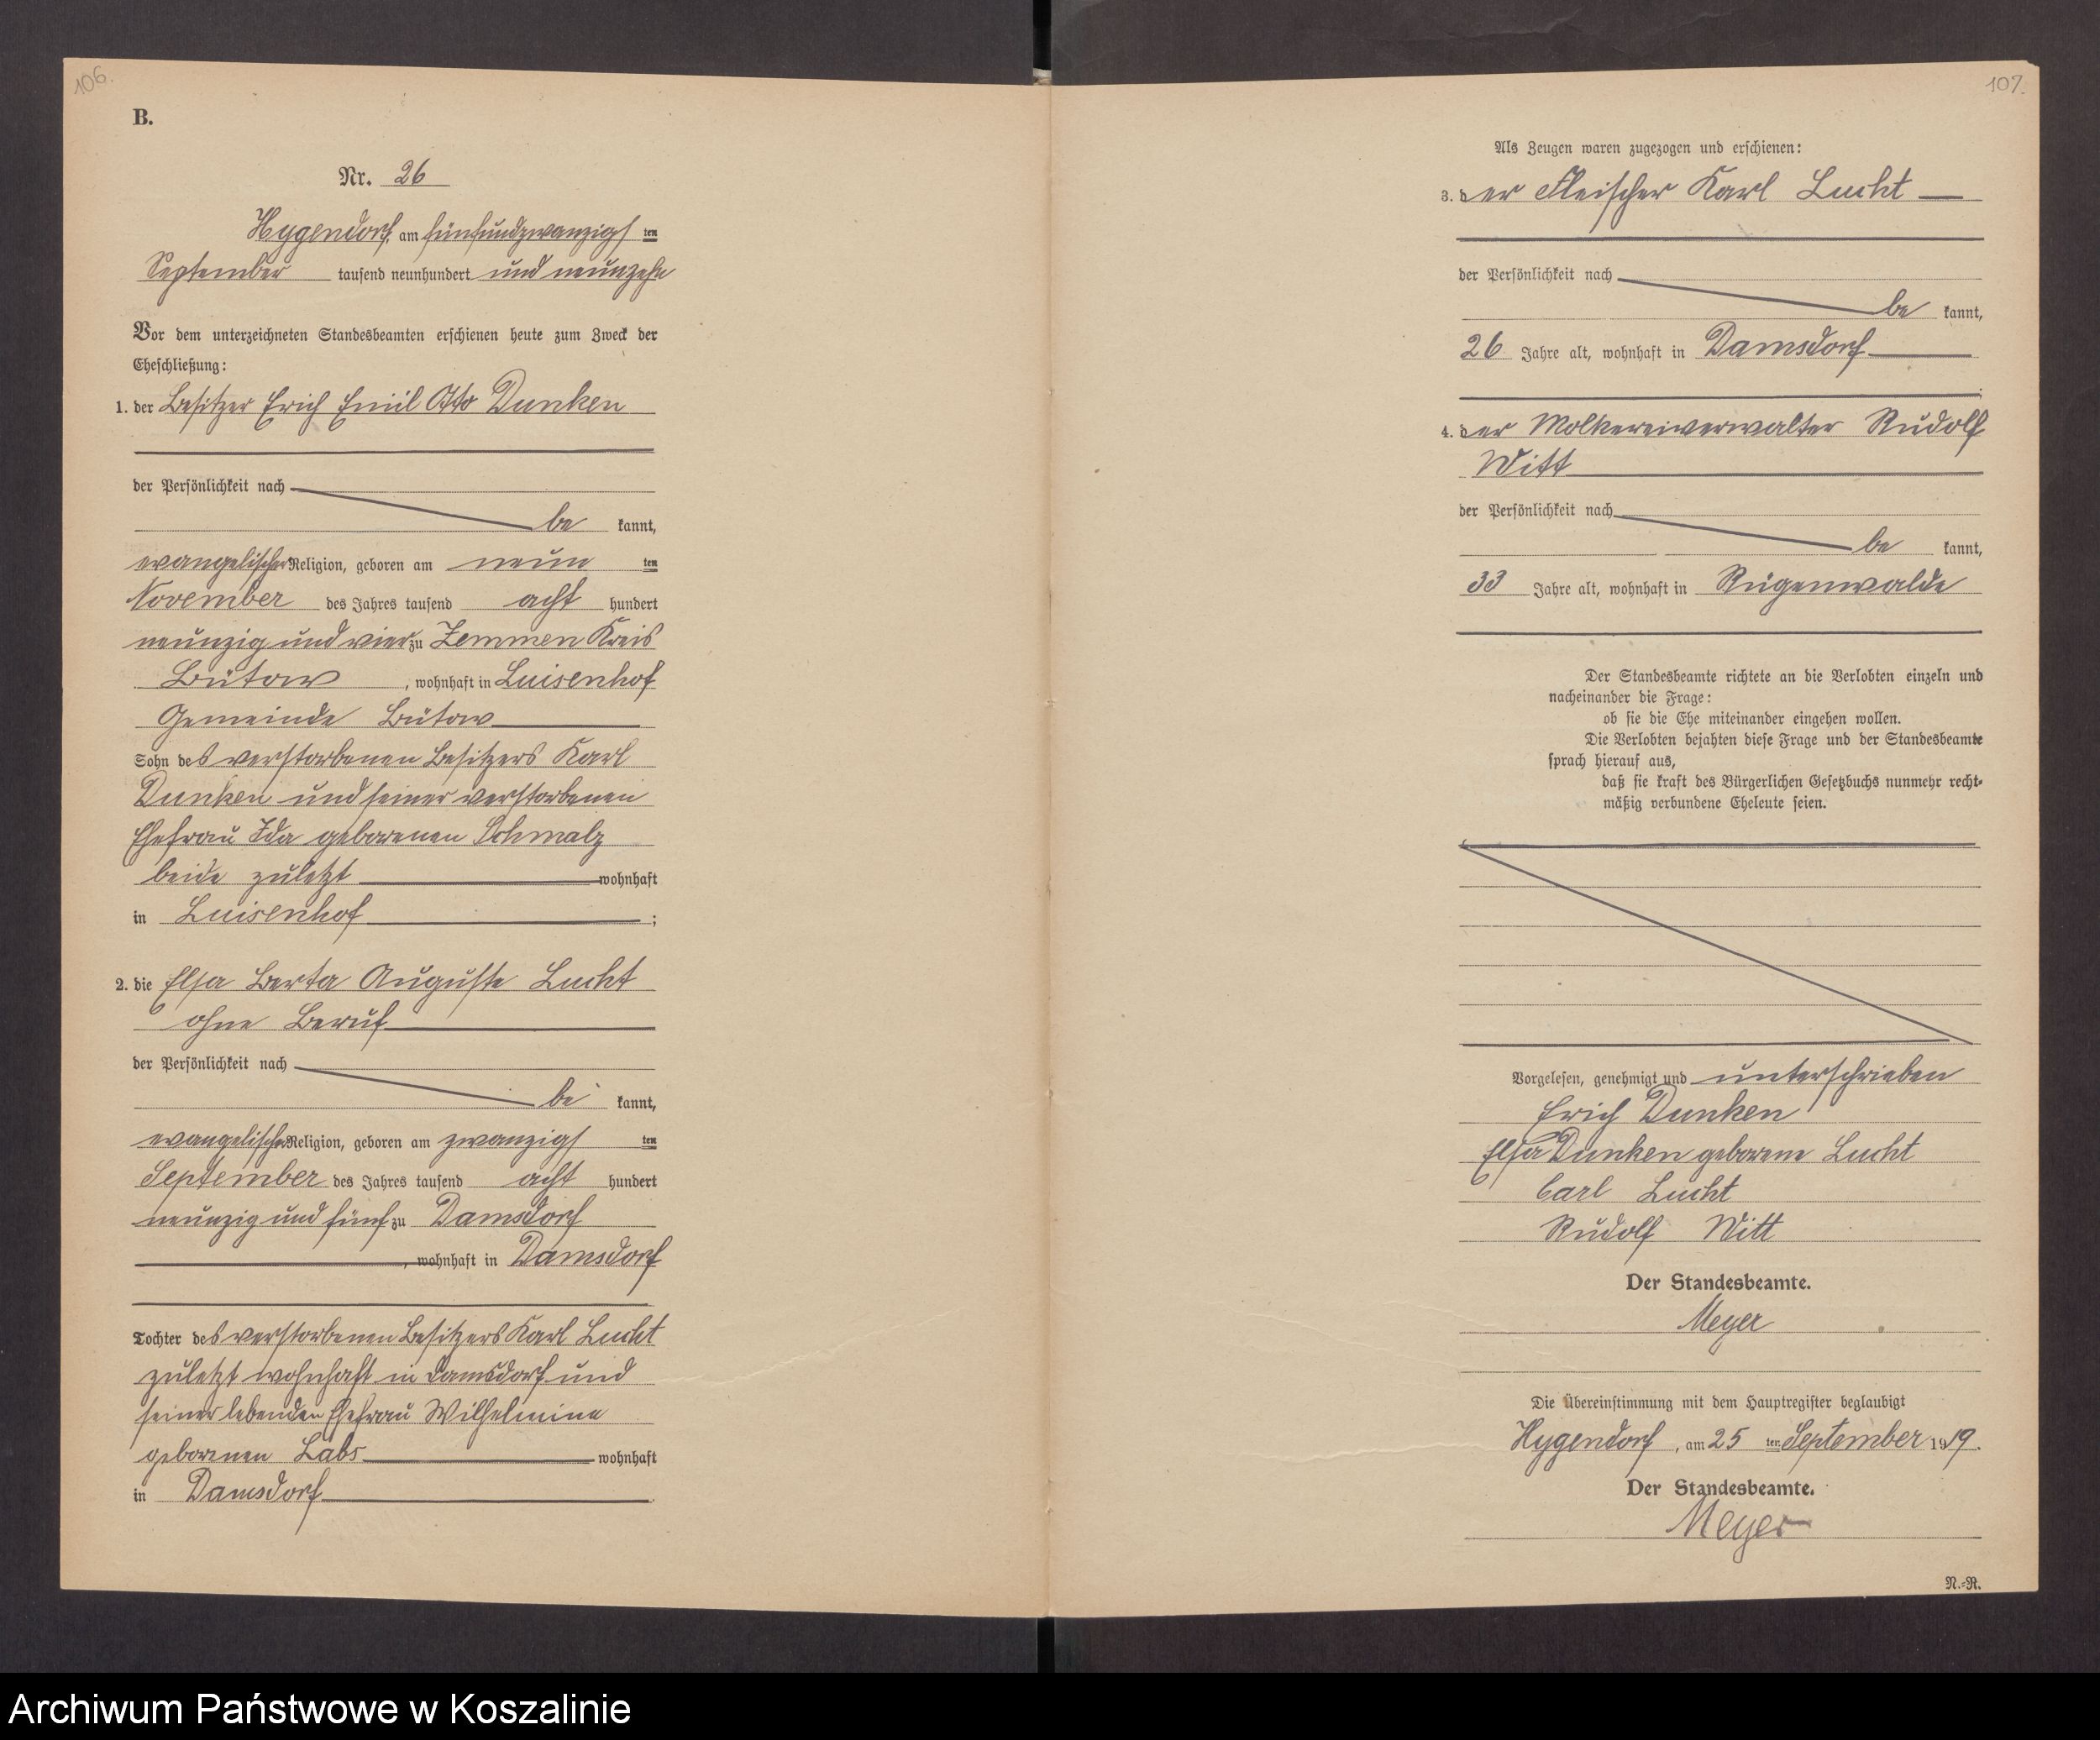 106.
B.
Nr. 26
Hygendorf, am fünfundzwanzigsten
September tausend neunhundert und neunzehn
Vor dem unterzeichneten Standesbeamten erschienen heute zum Zweck der
Eheschließung:
1. der Besitzer Erich Emil Otto Dunken
der Persönlichkeit nach
be kannt,
evangelischer Religion, geboren am neunten
November des Jahres tausend acht hundert
neunzig und vier zu Zemmen Kreis
Bütow, wohnhaft in Luisenhof
Gemeinde Bütow
Sohn des verstorbenen Besitzers Karl
Dunken und seiner verstorbenen
Ehefrau Ida geborenen Schmalz
beide zuletzt wohnhaft
in Luisenhof;
2. die Elsa Berta Auguste Lucht
ohne Beruf
der Persönlichkeit nach
be kannt,
evangelischer Religion, geboren am zwanzigsten
September des Jahres tausend acht hundert
neunzig und fünf zu Damsdorf
, wohnhaft in Damsdorf
Tochter des verstorbenen Besitzers Karl Lucht
zuletzt wohnhaft in Damsdorf und
seiner lebenden Ehefrau Wilhelmine
geborenen Labs wohnhaft
in Damsdorf.
107.
Als Zeugen waren zugezogen und erschienen:
3. der Fleischer Karl Lucht
der Persönlichkeit nach
be kannt,
26 Jahre alt, wohnhaft in Damsdorf
;
4. der Molkereiverwalter Rudolf
Witt
der Persönlichkeit nach
be kannt,
33 Jahre alt, wohnhaft in Rügenwalde
Der Standesbeamte richtete an die Verlobten einzeln und
nacheinander die Frage:
ob sie die Ehe miteinander eingehen wollen.
Die Verlobten bejahten diese Frage und der Standesbeamte
sprach hierauf aus,
daß sie kraft des Bürgerlichen Gesetzbuchs nunmehr recht-
mäßig verbundene Eheleute seien.
Vorgelesen, genehmigt und unterschrieben
Erich Dunken
Elsa Dunken geborene Lucht
Carl Lucht
Rudolf Witt
Der Standesbeamte.
Meyer
Die Übereinstimmung mit dem Hauptregister beglaubigt
Hygendorf, am 25 ten September 1919.
Der Standesbeamte.
Meyer
N.-R.
Archiwum Państwowe w Koszalinie